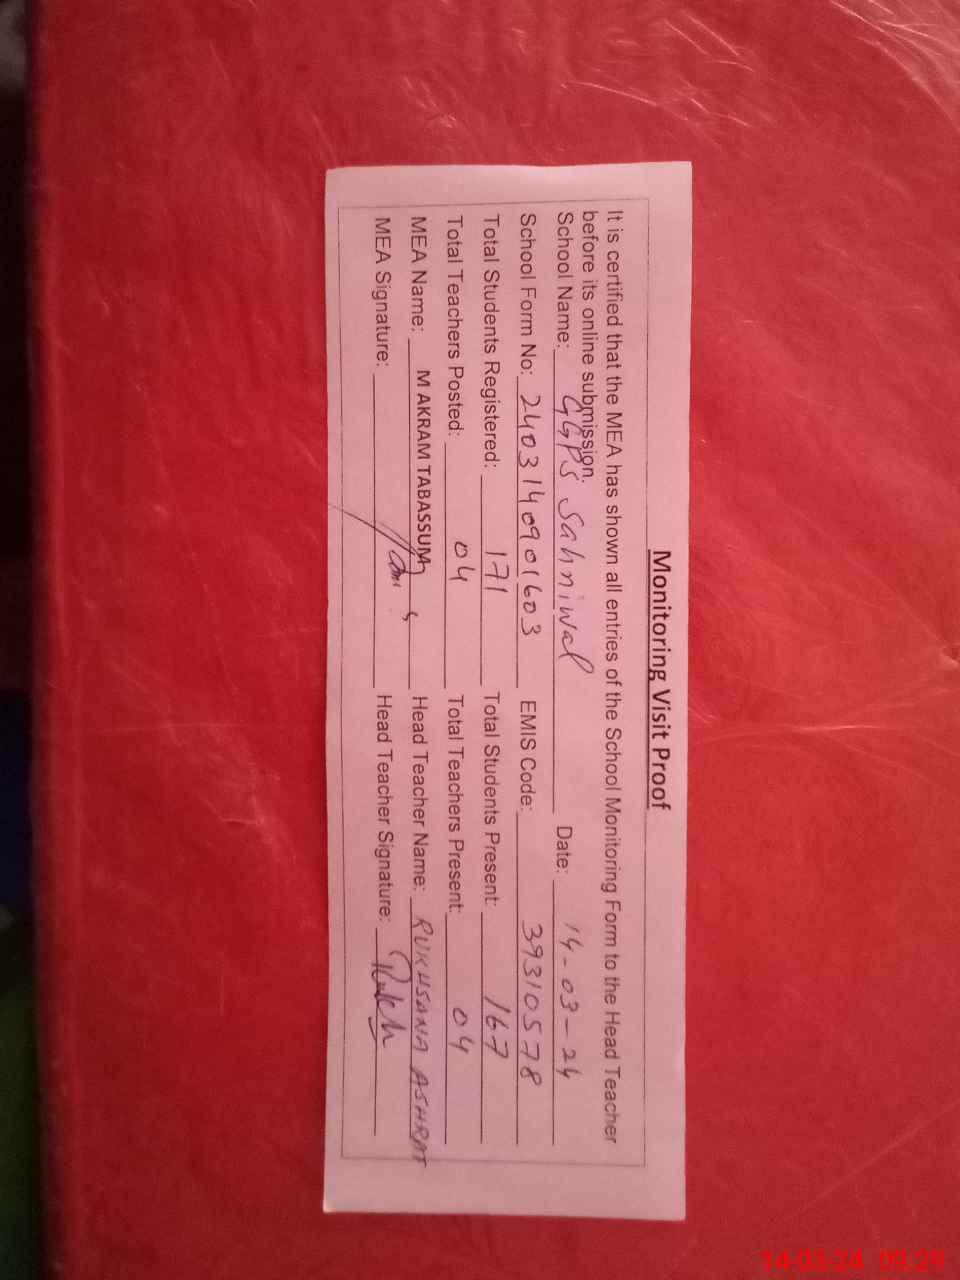 Monitoring Visit Proof
It is certified that the MEA has shown all entries of the School Monitoring Form to the Head Teacher
before its online submission.
School Name: GGPS Sahniwal Date: 14-03-24
School Form No: 2403140901603 EMIS Code: 39310578
Total Students Registered: 171 Total Students Present: 167
Total Teachers Posted: 04 Total Teachers Present: 04
MEA Name: M AKRAM TABASSUM Head Teacher Name: RUKHSANA ASHRAF
MEA Signature: Head Teacher Signature: Rukh
14-03-24 09:29